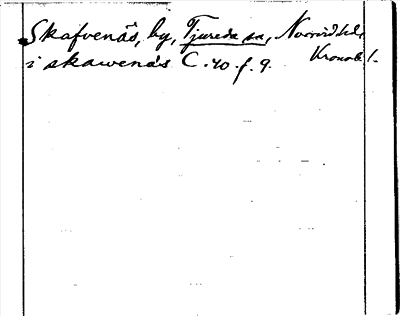 Skafvenäs, by, Tjureda sn, Norrvid hd,
i skawenäs C. 40. f. 9. Kronob l.